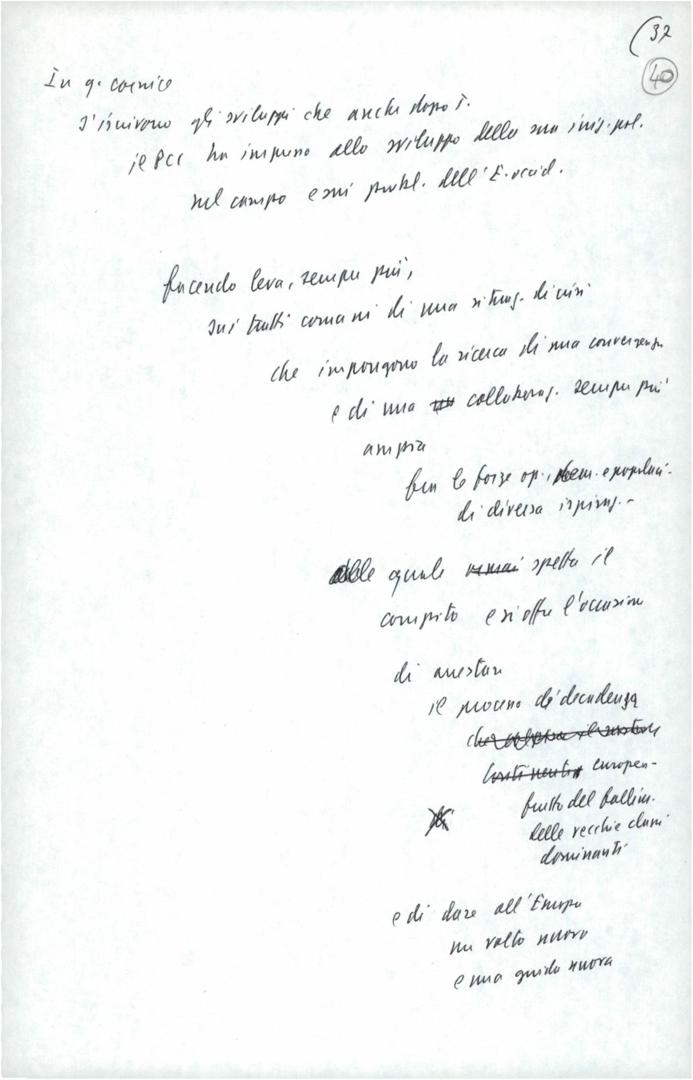 (32
40
In q. cornice
s'iscrivono gli sviluppi che anche dopo i.
il PCI ha impresso allo sviluppo della sua iniz. pol.
nel campo e sui probl. dell'E. occid.
facendo leva, sempre più,
sui tratti comuni di una situaz. di crisi
che impongono la ricerca di una convergenza
e di una collaboraz. sempre più
ampia
fra le forze op., dem. e popolari
di diversa ispiraz. -
alle quale spetta il
compito e si offre l'occasione
di arrestare
il processo di decadenza
europea -
frutto del fallim.
delle vecchie classi
dominanti
e di dare all'Europa
un volto nuovo
e una guida nuova